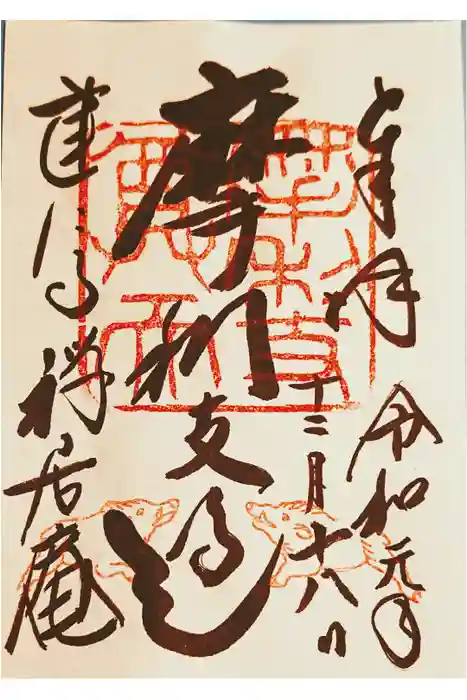 奉拝
令和元年
十二月十八日
摩利支尊天
建仁寺禅居庵